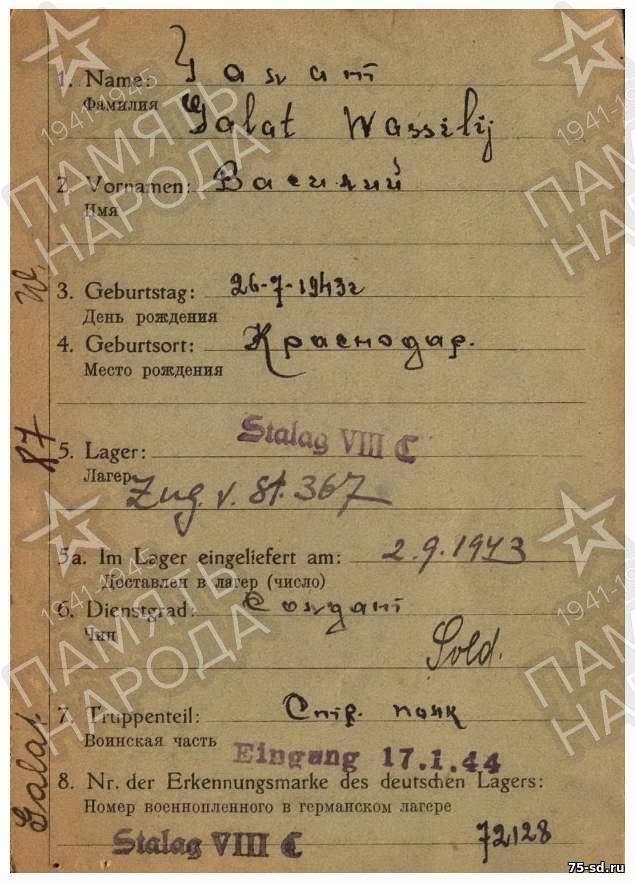 1. Name: Галат
Фамилия
Galat Wassilij
2. Vornamen: Василий
Имя
3. Geburtstag: 26-7-1943г
День рождения
4. Geburtsort: Краснодар.
Место рождения
5. Lager: Stalag VIII C
Лагерь
Zug. v. St. 367
5a. Im Lager eingeliefert am: 2.9.1943
Доставлен в лагер (число)
6. Dienstgrad: Солдат
Чин
Sold.
7. Truppenteil: Стр. полк
Воинская часть
Eingang 17.1.44
8. Nr. der Erkennungsmarke des deutschen Lagers:
Номер военнопленного в германском лагере
Stalag VIII C 72128
Galat
87
W.
ПАМЯТЬ НАРОДА
1941-1945
75-sd.ru